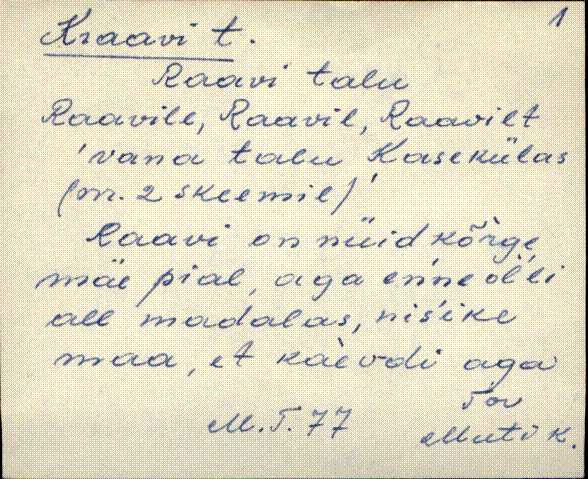 1
Kraavi t.
Raavi talu
Raavile, Raavil, Raavilt
'vana talu Kasekülas'
(nr. 2 skeemil)
Raavi on nüid kõrge
mäe pial, aga enne ol'li
all madalas, nis'ike
maa, et kaevdi aga
Tõv
M.T. 77
Muti k.